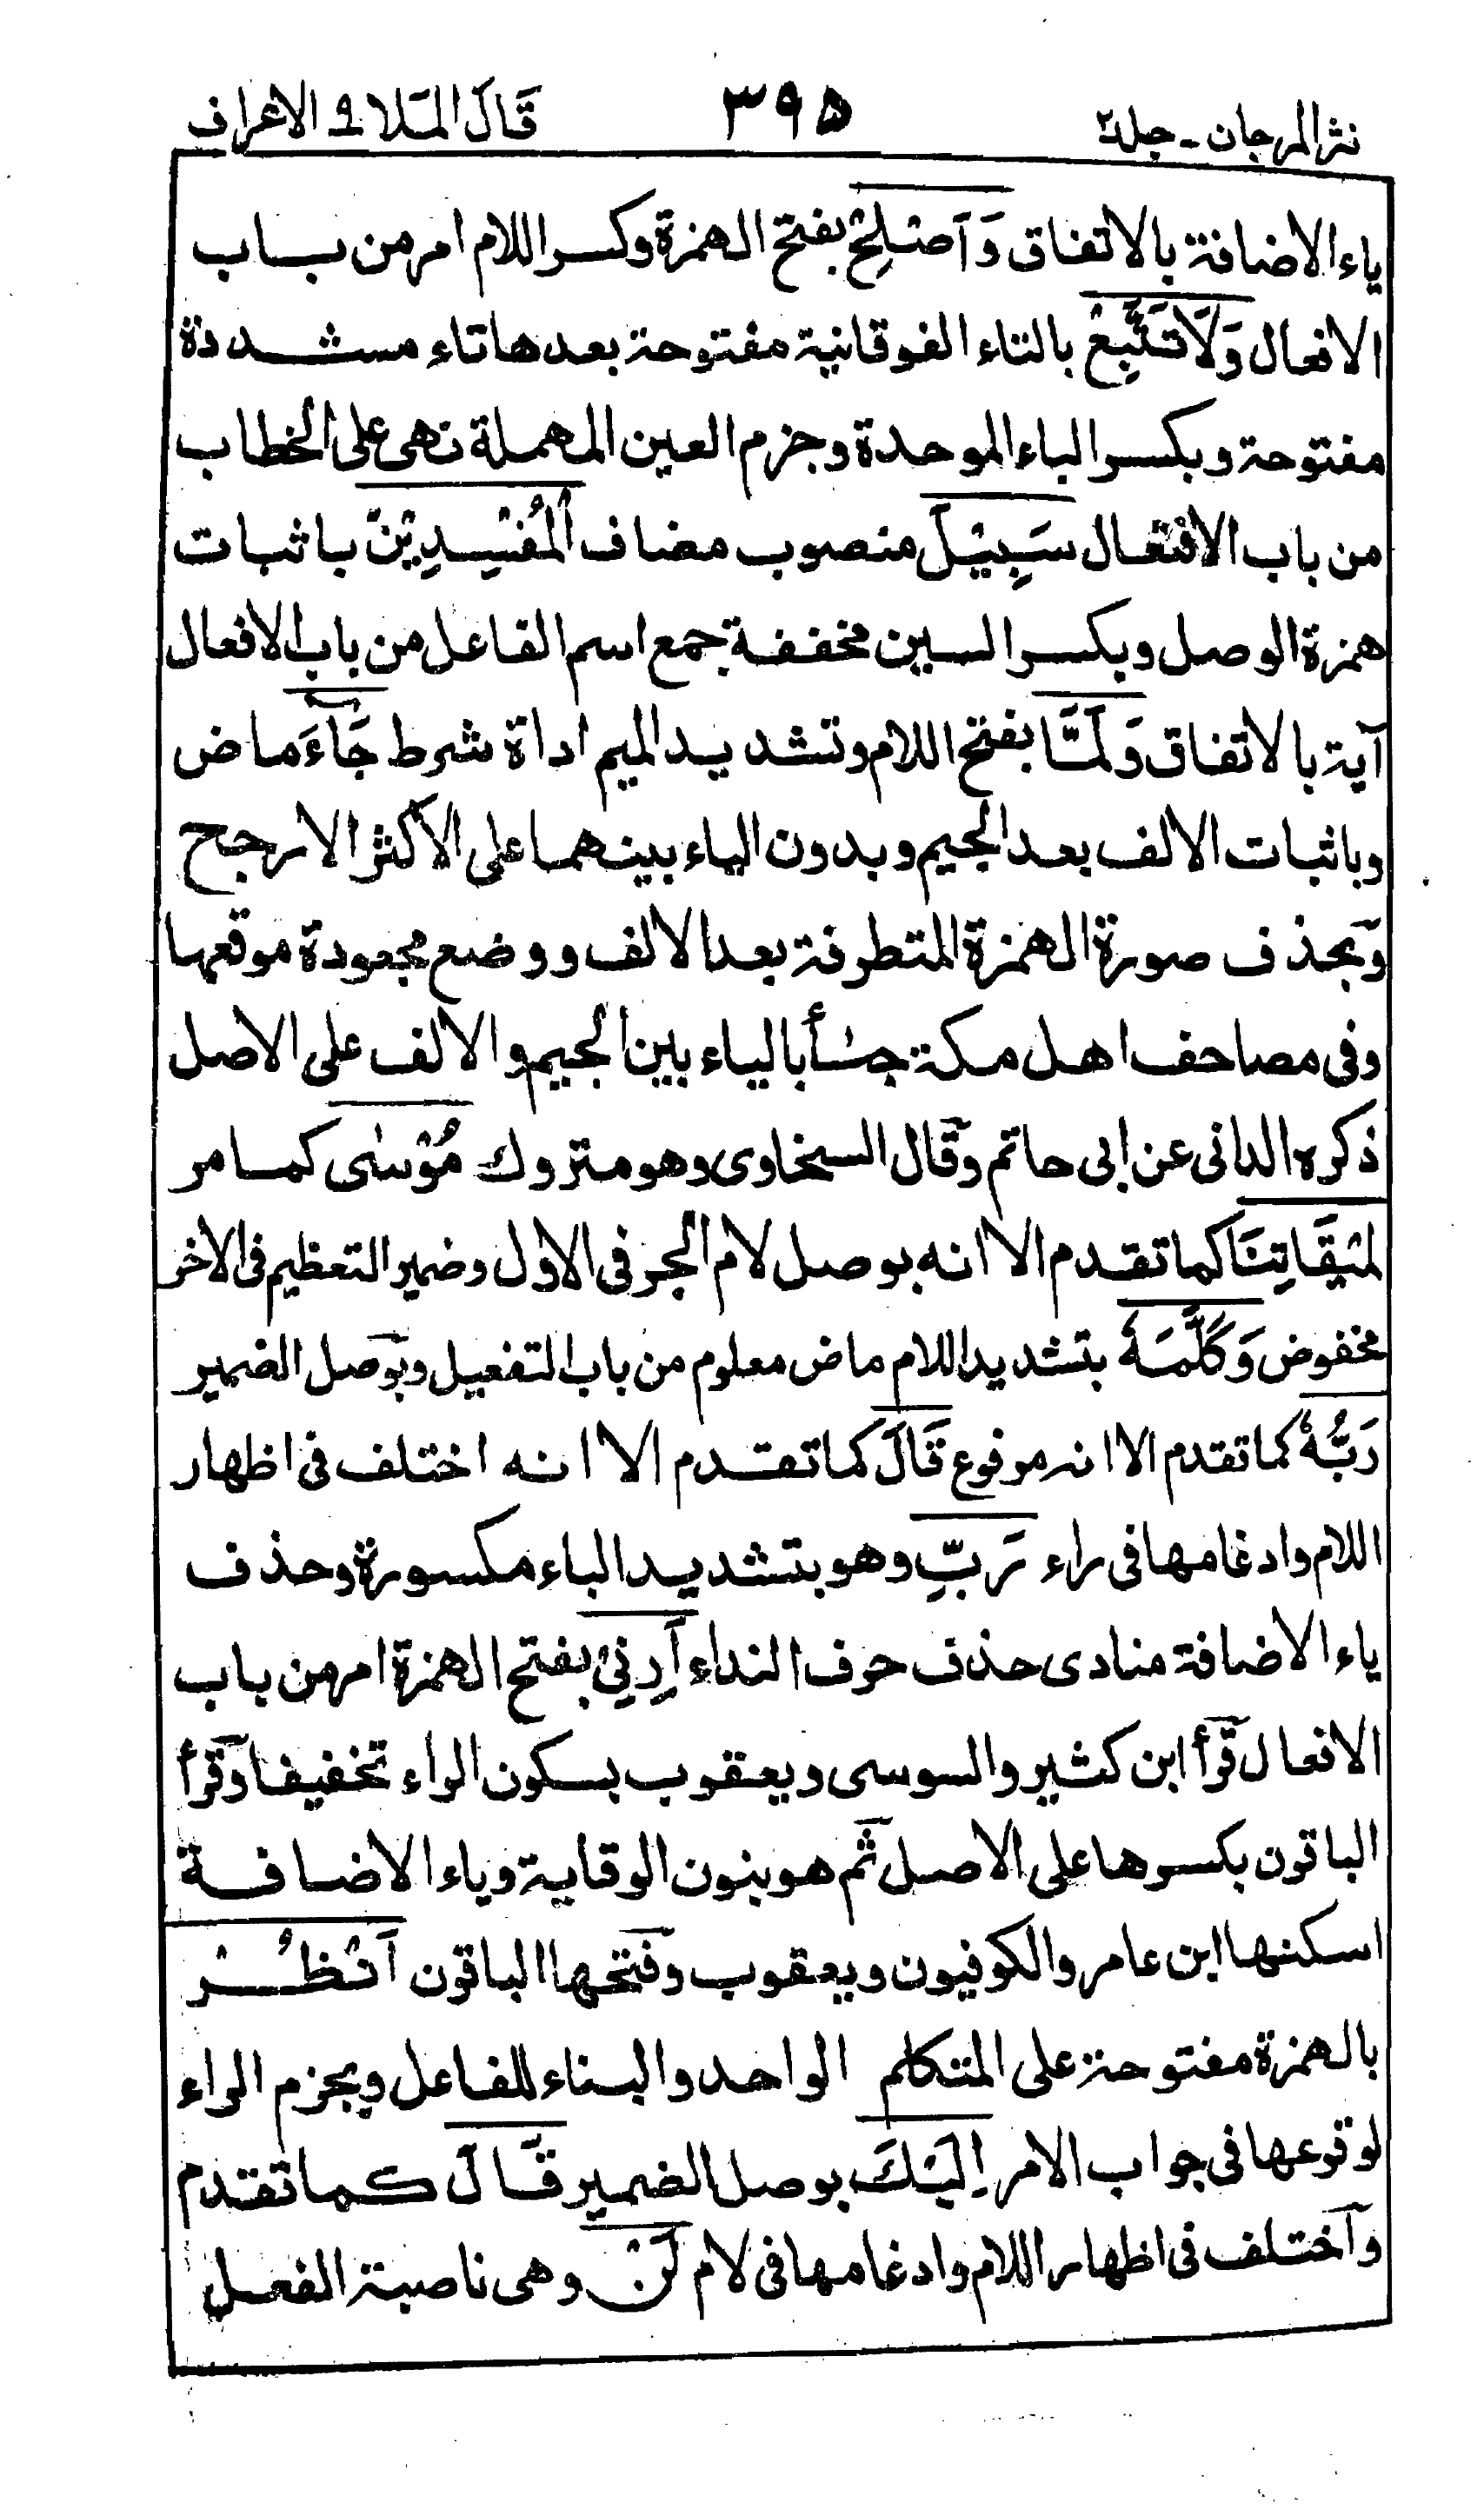 نثر المرجان - جلد ٢
٣٩٥
قَالَ المَلَا ٩ الاعراف
ياء الاضافة بالاتفاق وَاَصْلِحْ بفتح الهمزة وكسر اللام امر من باب
الافعال وَلَا تَتَّبِعْ بالتاء الفوقانية مفتوحة بعدها تاء مشددة
مفتوحة وبكسر الباء الموحدة وجزم العين المهملة نهى على الخطاب
من باب الافتعال سَبِيْلَ منصوب مضاف الْمُفْسِدِيْنَ باثبات
همزة الوصل وبكسر السين مخففة جمع اسم الفاعل من باب الافعال
آية بالاتفاق وَلَمَّا بفتح اللام وتشديد الميم اداة شرط جَآءَ ماض
وباثبات الالف بعد الجيم وبدون الياء بينهما على الاكثر الارجح
وبحذف صورة الهمزة المتطرفة بعد الالف ووضع مجعودة موقعها
وفى مصاحف اهل مكة جيأ بالياء بين الجيم والالف على الاصل
ذكره الدانى عن ابى حاتم وقال السخاوى وهو متروك مُوْسٰى كما مر
لِمِيْقَاتِنَا كما تقدم الا انه بوصل لام الجر فى الاول وضمير التعظيم فى الاخر
مخفوض وَكَلَّمَهٗ بتشديد اللام ماض معلوم من باب التفعيل وبوصل الضمير
رَبُّهٗ كما تقدم الا انه مرفوع قَالَ كما تقدم الا انه اختلف فى اظهار
اللام وادغامها فى راء رَبِّ وهو بتشديد الباء مكسورة وحذف
ياء الاضافة منادى حذف حرف النداء اَرِنِيْ بفتح الهمزة امر من باب
الافعال قرأ ابن كثير والسوسى ويعقوب بسكون الراء تخفيفا وقرأ
الباقون بكسرها على الاصل ثم هو بنون الوقاية وياء الاضافة
اسكنها ابن عامر والكوفيون ويعقوب وفتحها الباقون اَنْظُرْ
بالهمزة مفتوحة على المتكلم الواحد والبناء للفاعل وبجزم الراء
لوقوعها فى جواب الامر اِلَيْكَ بوصل الضمير قَالَ كما تقدم
واختلف فى اظهار اللام وادغامها فى لام لَنْ وهى ناصبة الفعل